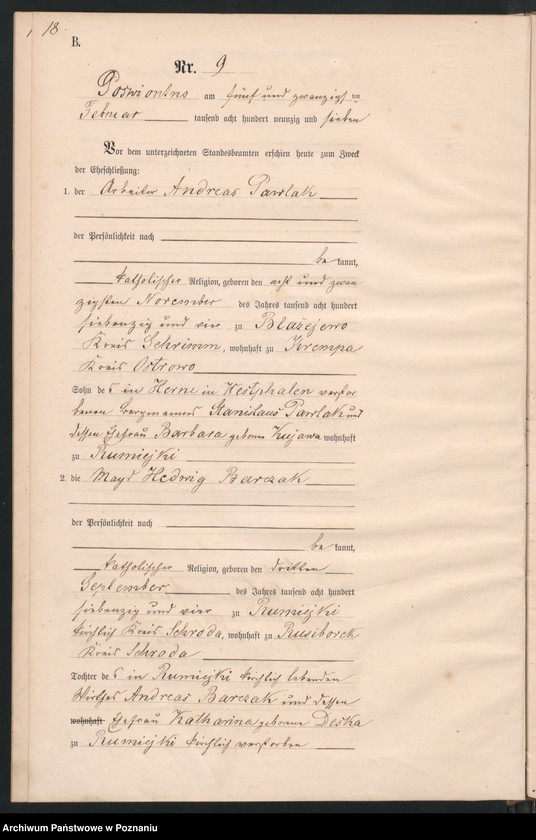 18.
B.
Nr. 9
am fünf und zwanzigsten
Februar tausend acht hundert neunzig und sieben
Vor dem unterzeichneten Standesbeamten erschien heute zum Zweck
der Eheschließung:
1. der Arbeiter Andreas Pawlak
der Persönlichkeit nach
be kannt,
katholischer Religion, geboren den acht und zwan
zigsten November des Jahres tausend acht hundert
siebenzig und vier zu Blažejewo
Kreis Schrimm, wohnhaft zu Krempa
Kreis Ostrowo
Sohn des in Herne in Westphalen verstor
benen Bergmannes Stanislaus Pawlak und
dessen Ehefrau Barbara geborne Kujawa wohnhaft
zu Rumiejki
2. die Magd Hedwig Barczak
der Persönlichkeit nach
be kannt,
katholischer Religion, geboren den dritten
September des Jahres tausend acht hundert
siebenzig und vier zu Rumiejki
Kreis Schroda, wohnhaft zu Rusiborek
Kreis Schroda
Tochter des in Rumiejki lebenden
Wirthes Andreas Barczak und dessen
wohnhaft Ehefrau Katharina geborene Deska
zu Rumiejki verstorben
Archiwum Państwowe w Poznaniu